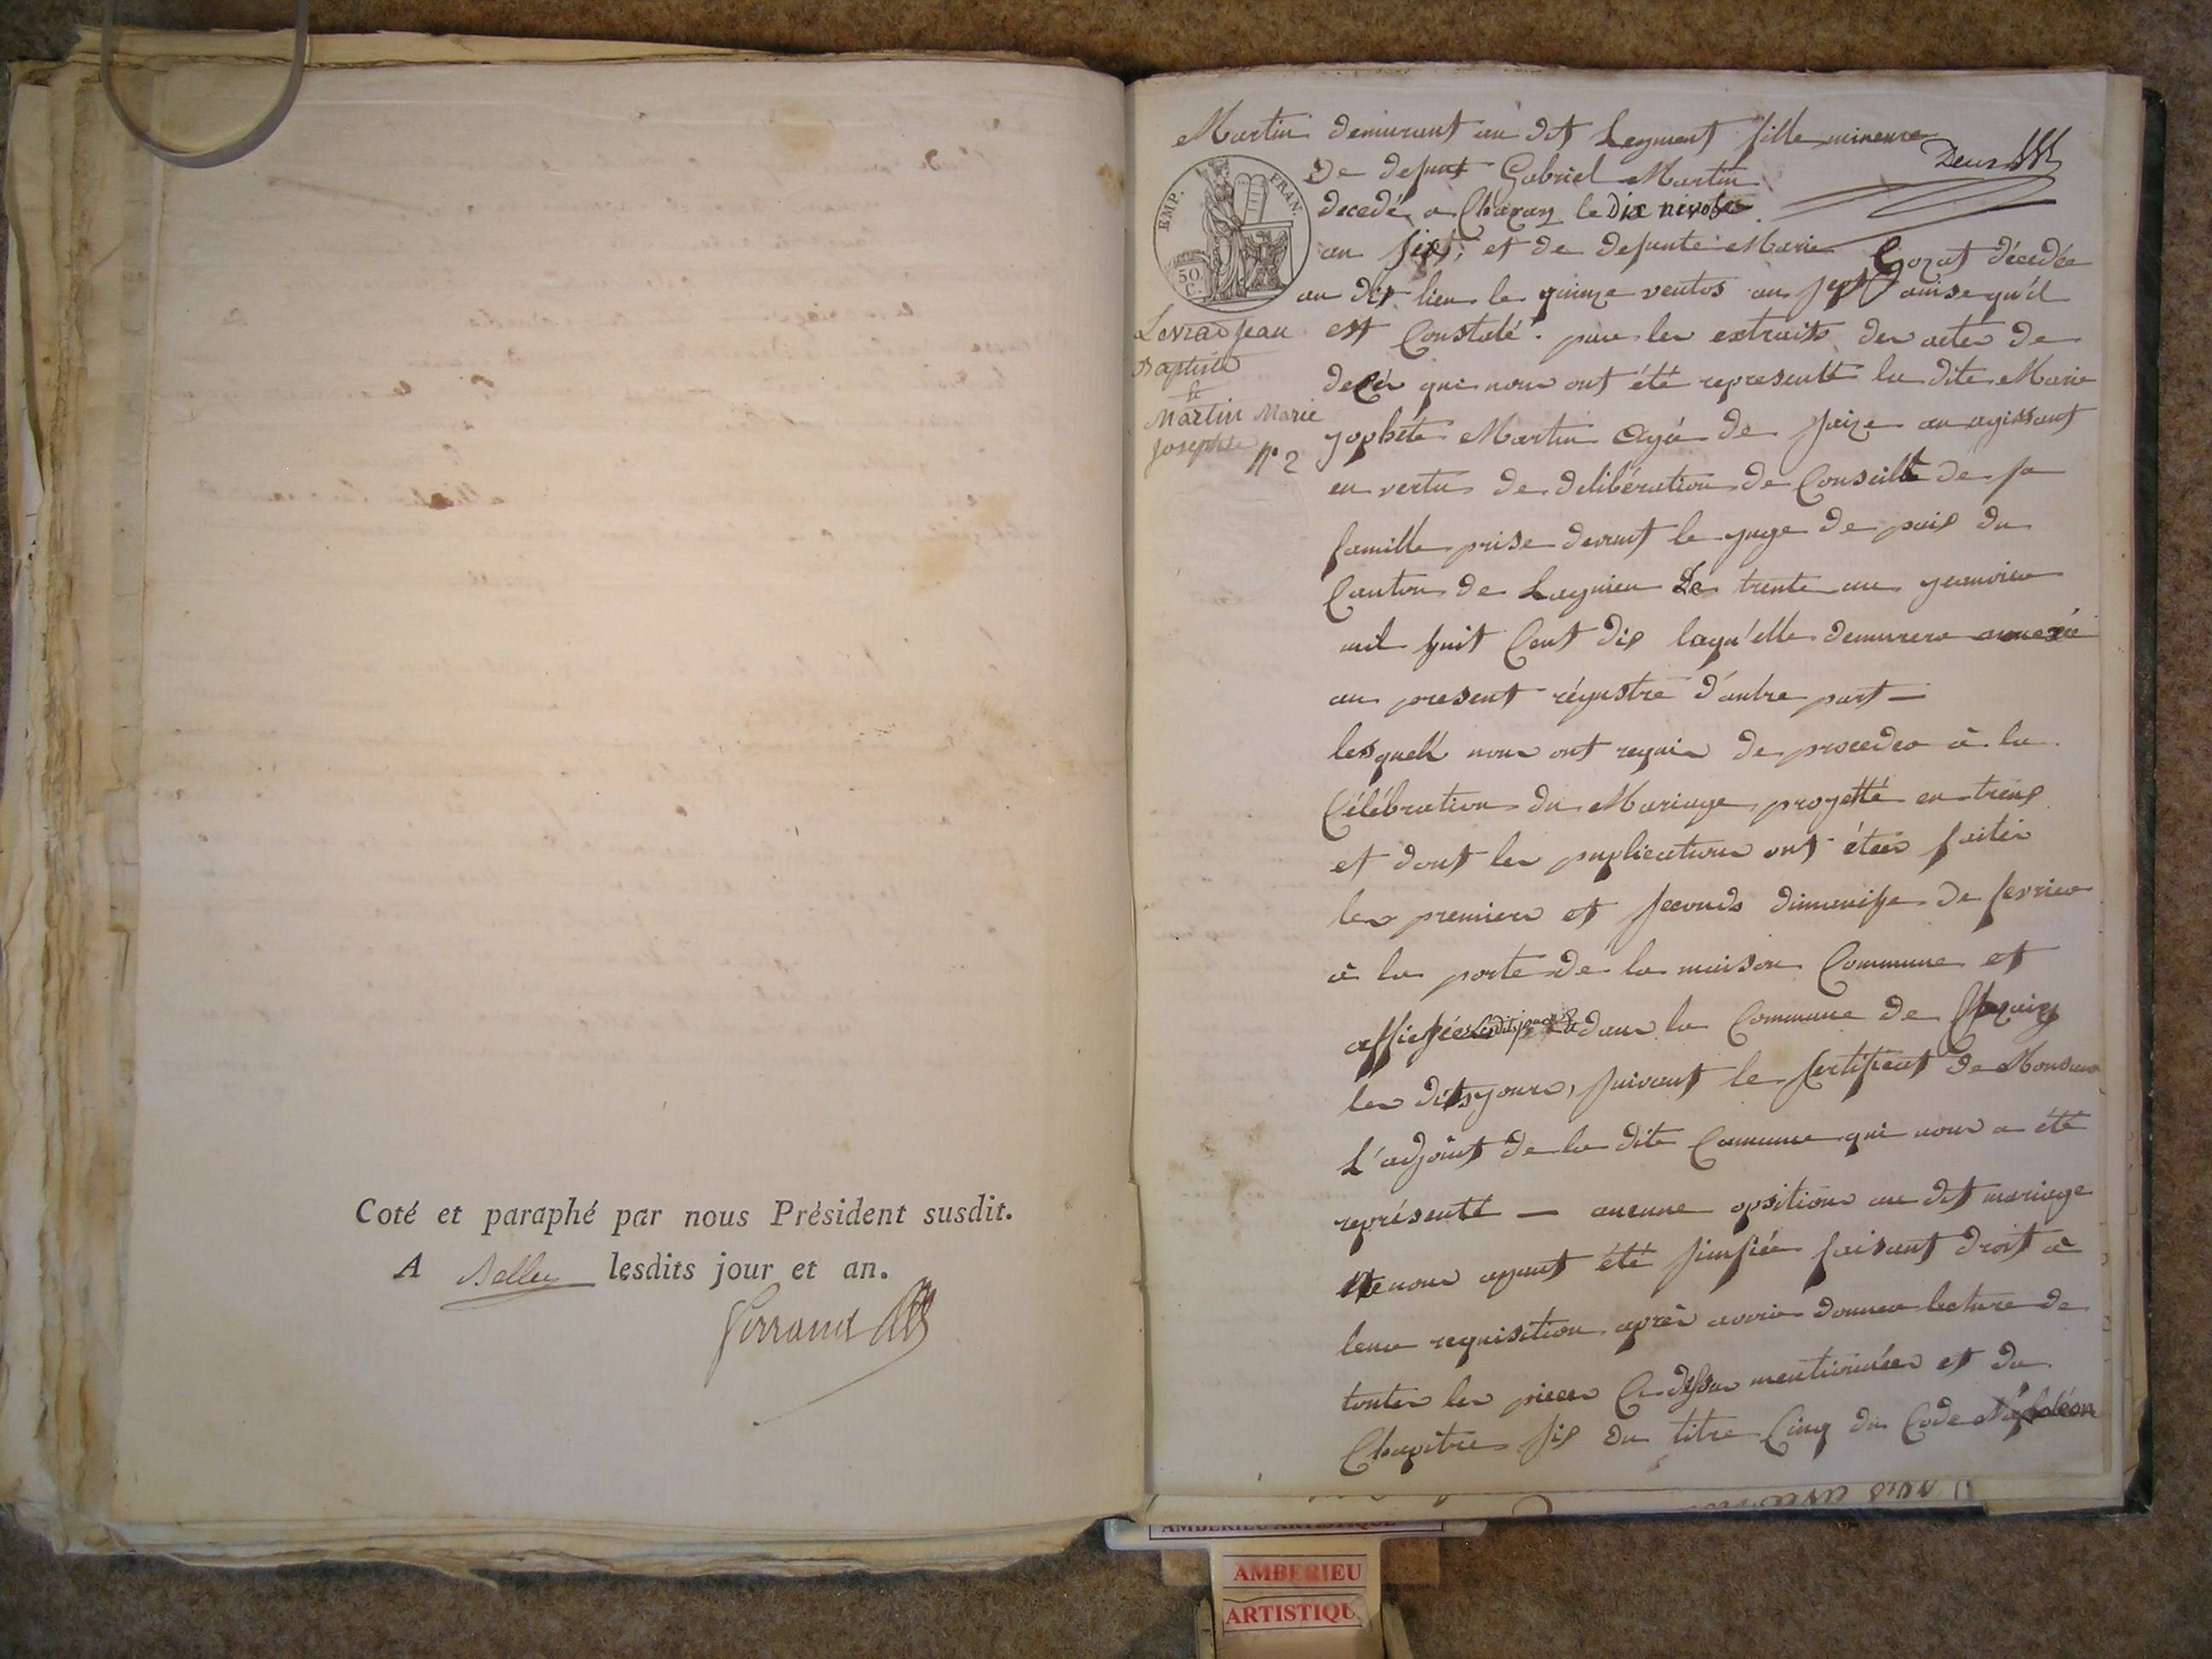 Coté et paraphé par nous Président susdit.
A Belley lesdits jour et an.
Ferrand
Martin demurant au dit Leyment fille mineure
Deux
EMP. FRAN.
50 C.
de defunt Gabriel Martin
decedé a Chazay le dix nivose
an six; et de defunte Marie Gozat décedée
au dit lieu le quinze ventos an sept ainse qu'il
est Constaté par les extraits des actes de
decés qui nous ont été representé la dite Marie
Josphete Martin agée de seize an agissant
en vertu de delibération de Conseille de sa
famille prise devant le juge de paix du
Canton de Lagnieu Le trente un jeanvier
mil huit Cent dix laqu'elle demurera annexée
au present régistre d'autre part —
lesquels nous ont requis de proceder à la
Célébration du Mariage projetté entreux
et dont les puplications ont étées faites
les premiers et seconds dimenche de fevrier
à la porte de la maison Commune et
affichée dans la Commune de Chazay
les dits jours, suivant le sertificat de Monsieur
L'adjoint de la dite Commune qui nous a été
représenté — aucune opsition au dit mariage
ne nous ayant été sinifiée faisant droit à
leur requisition après avoir donner lecture de
toutes les pieces Ci dessus mentionnées et du
Chapitre six du titre Cinq du Code Napoléon
Levrat Jean
Baptiste
&
Martin Marie
Josephte
N° 2
AMBERIEU ARTISTIQUE
AMBERIEU
ARTISTIQU